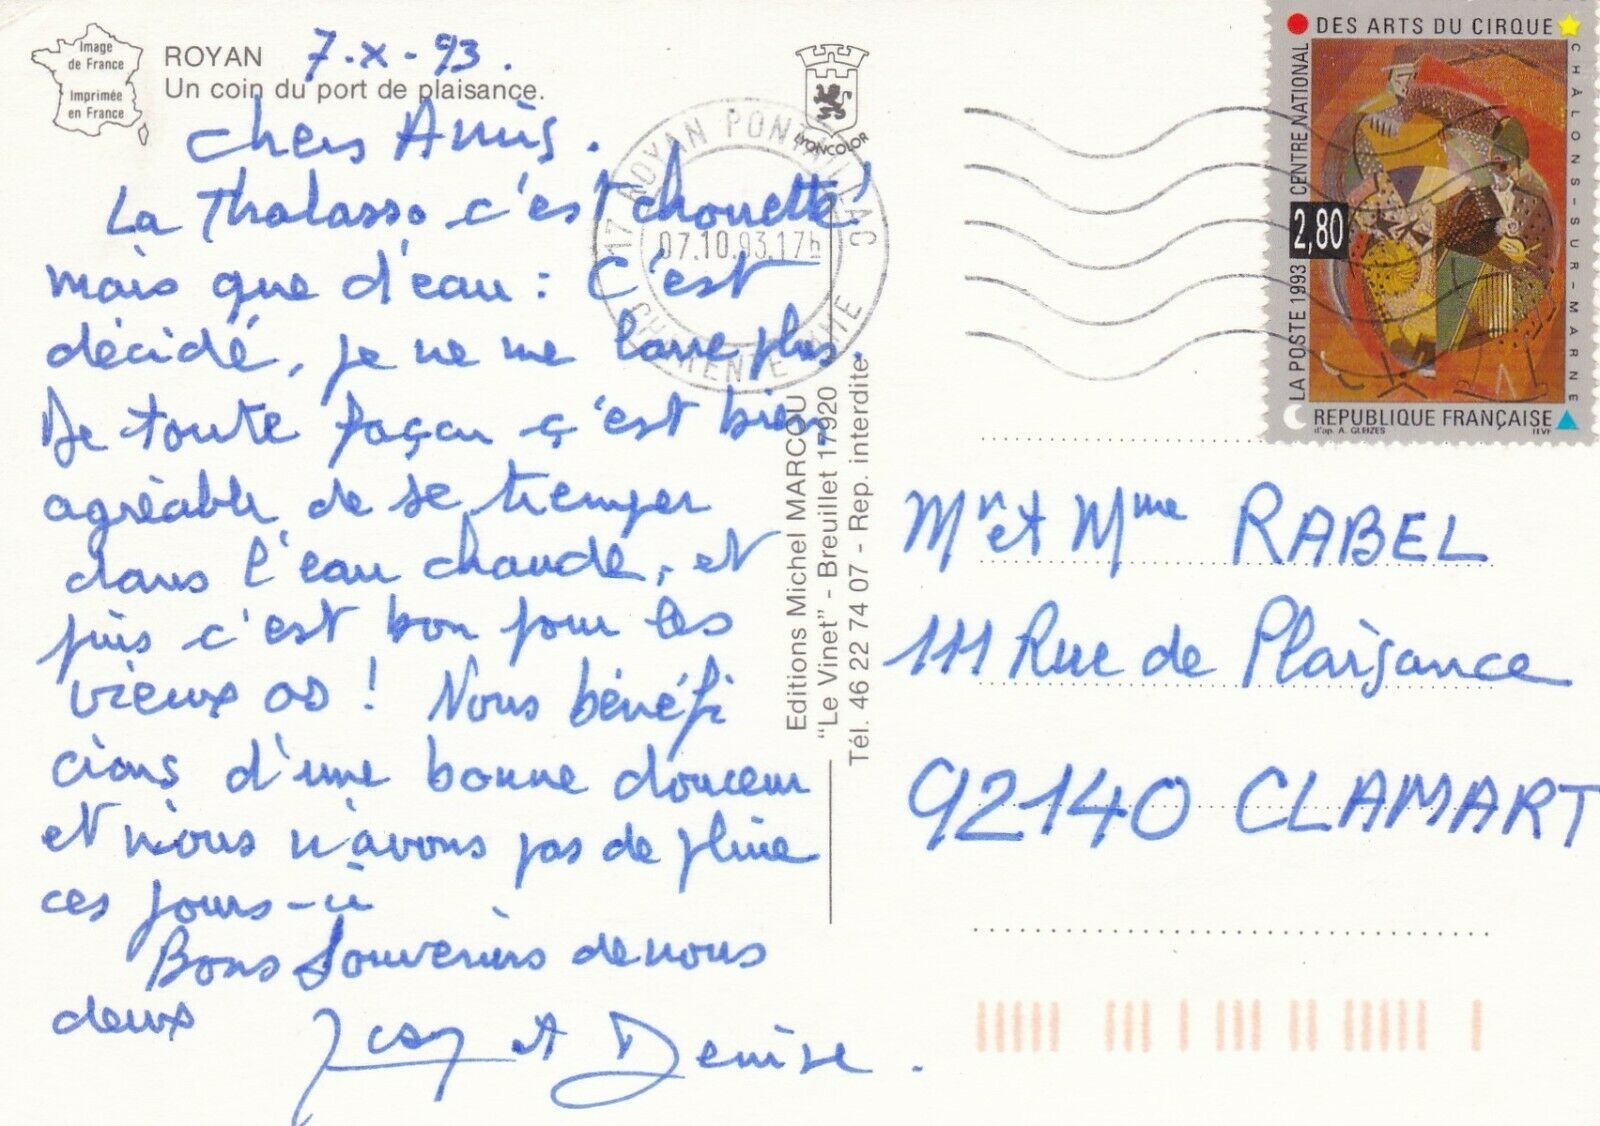 Image
de France
Imprimée
en France
ROYAN
7-X-93.
Un coin du port de plaisance.
Chers Amis.
La Thalasso c'est chouette!
mais que d'eau : C'est
décidé, je ne me lave plus.
De toute façon c'est bien
agréable de se tremper
dans l'eau chaude, et
puis c'est bon pour les
vieux os ! Nous bénéfi
cions d'une bonne douceur
et nous n'avons pas de pluie
ces jours-ci
Bons Souvenirs de nous
deux
et Denise.
LYONCOLOR
17 ROYAN PONTAILLAC
07.10.93.17h
CHARENTE MME
Editions Michel MARCOU
"Le Vinet" - Breuillet 17920
Tél. 46 22 74 07 - Rep. interdite
DES ARTS DU CIRQUE
CHALONS-SUR-MARNE
LA POSTE 1993 CENTRE NATIONAL
2,80
REPUBLIQUE FRANÇAISE
d'ap. A. GLEIZES ITVF
Mr et Mme RABEL
111 Rue de Plaisance
92140 CLAMART